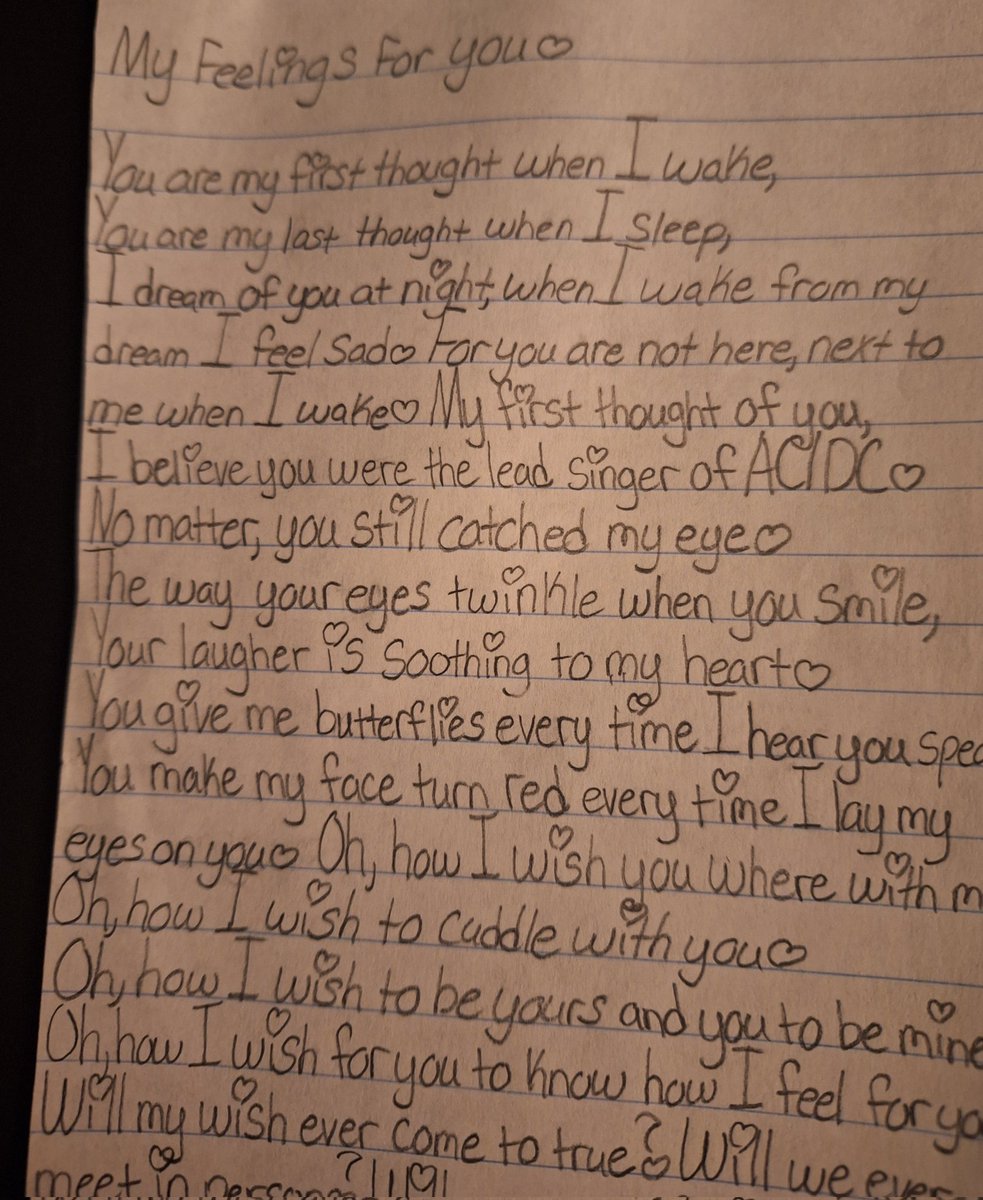 My Feelings For you♡
You are my first thought when I wake,
You are my last thought when I sleep,
I dream of you at night, when I wake from my
dream I feel sad♡ For you are not here, next to
me when I wake♡ My first thought of you,
I believe you were the lead singer of AC/DC♡
No matter, you still catched my eye♡
The way your eyes twinkle when you smile,
Your laugher is soothing to my heart♡
You give me butterflies every time I hear you
You make my face turn red every time I lay my
eyes on you♡ Oh, how I wish you where with
Oh, how I wish to cuddle with you♡
Oh, how I wish to be yours and you to be mine
Oh, how I wish for you to know how I feel for
Will my wish ever come to true? Will we ever
meet in